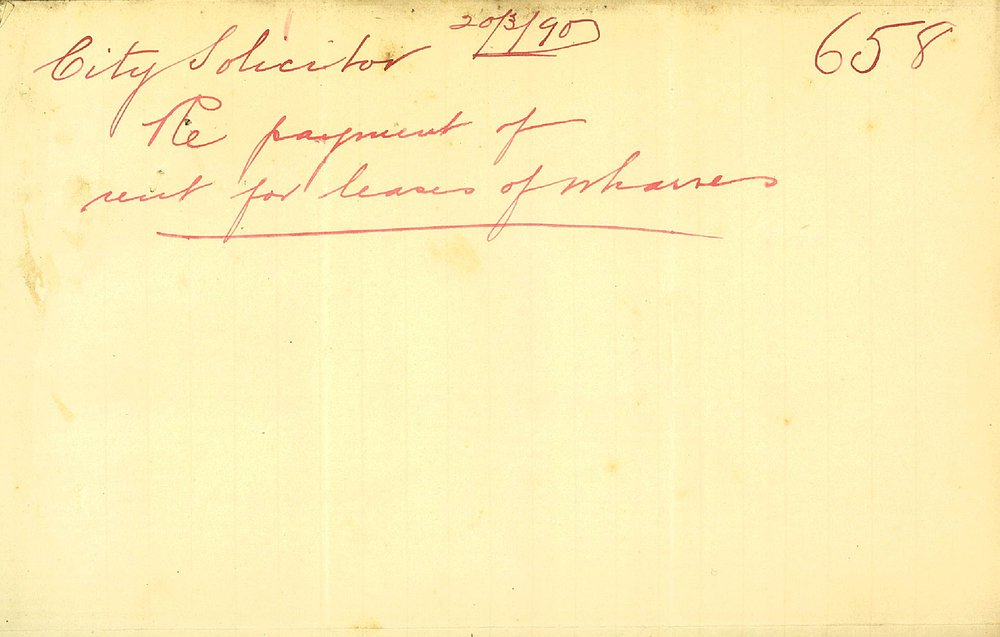 City Solicitor 20/3/90 658
Re payment of
rent for leases of wharves